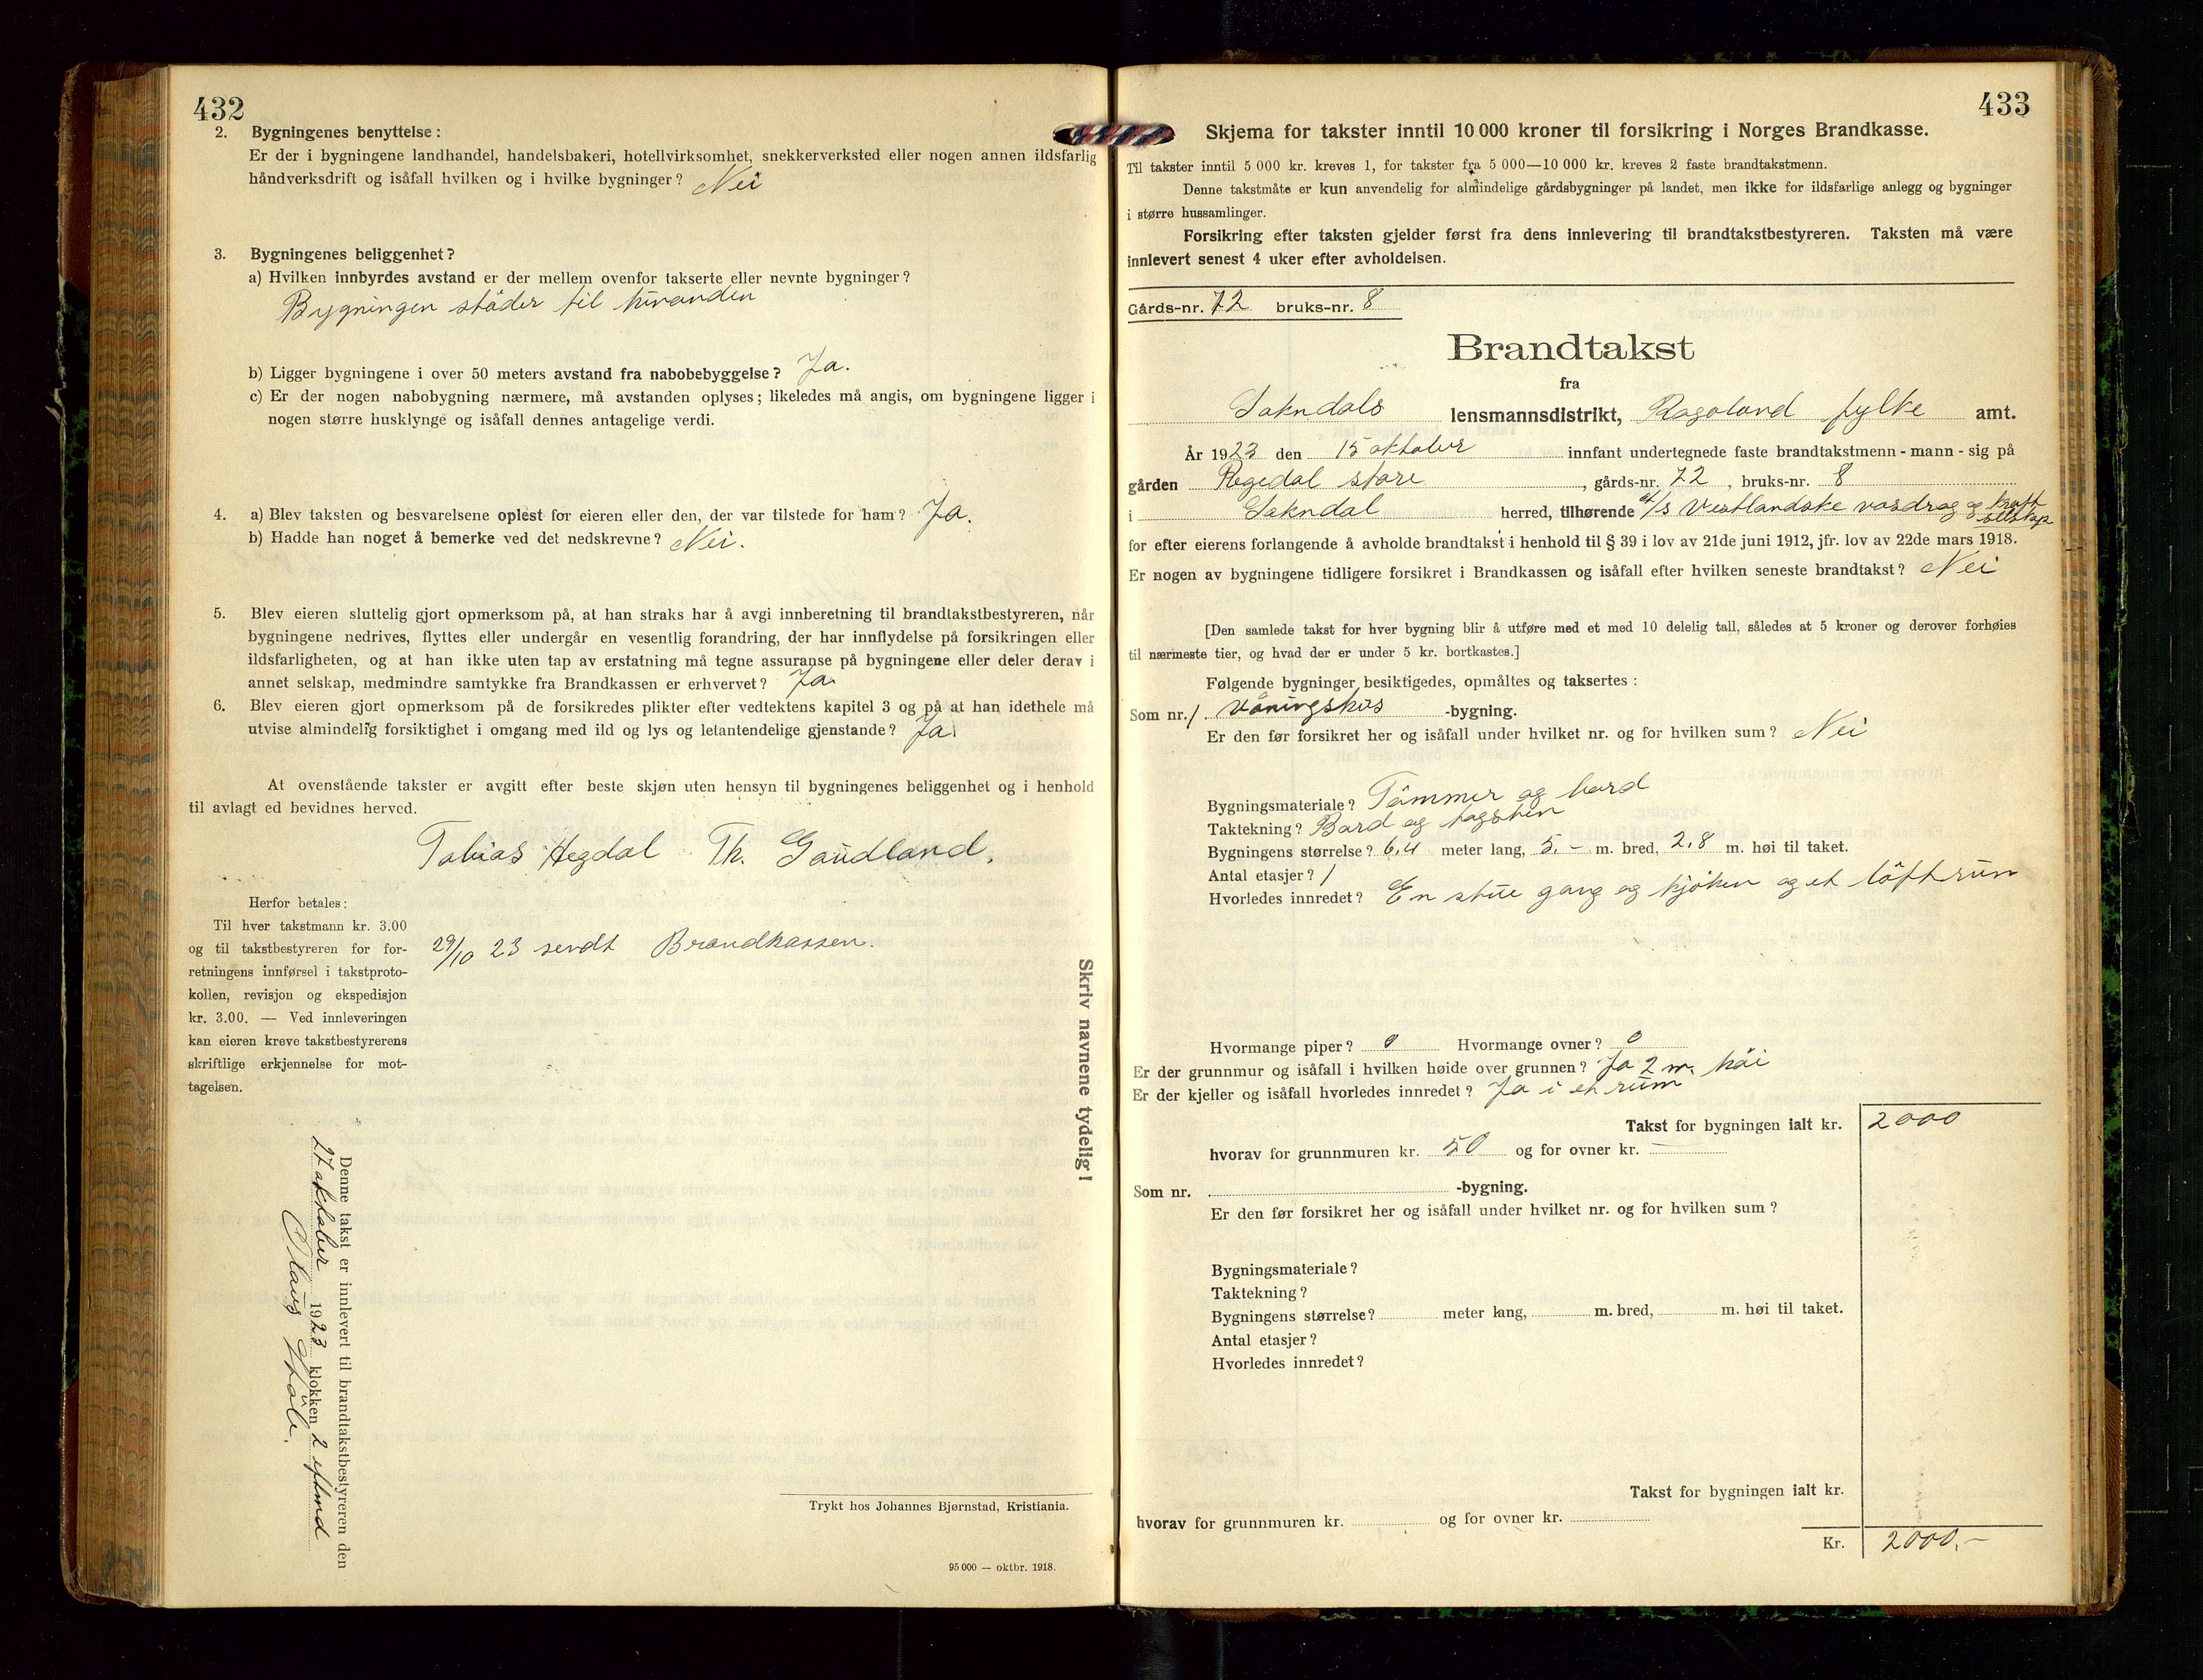 432
2. Bygningenes benyttelse:
Er der i bygningene landhandel, handelsbakeri, hotellvirksomhet, snekkerverksted eller nogen annen ildsfarlig
håndverksdrift og isåfall hvilken og i hvilke bygninger? Nei
3. Bygningenes beliggenhet?
a) Hvilken innbyrdes avstand er der mellem ovenfor takserte eller nevnte bygninger?
Bygningen støder til hverandre
b) Ligger bygningene i over 50 meters avstand fra nabobebyggelse? Ja.
c) Er der nogen nabobygning nærmere, må avstanden oplyses; likeledes må angis, om bygningene ligger i
nogen større husklynge og isåfall dennes antagelige verdi.
4. a) Blev taksten og besvarelsene oplest for eieren eller den, der var tilstede for ham? Ja.
b) Hadde han noget å bemerke ved det nedskrevne? Nei.
5. Blev eieren sluttelig gjort opmerksom på, at han straks har å avgi innberetning til brandtakstbestyreren, når
bygningene nedrives, flyttes eller undergår en vesentlig forandring, der har innflydelse på forsikringen eller
ildsfarligheten, og at han ikke uten tap av erstatning må tegne assuranse på bygningene eller deler derav i
annet selskap, medmindre samtykke fra Brandkassen er erhvervet? Ja
6. Blev eieren gjort opmerksom på de forsikredes plikter efter vedtektens kapitel 3 og på at han idethele må
utvise almindelig forsiktighet i omgang med ild og lys og letantendelige gjenstande? Ja
At ovenstående takster er avgitt efter beste skjøn uten hensyn til bygningenes beliggenhet og i henhold
til avlagt ed bevidnes herved.
Tobias Hegdal Th. Gaudland.
Herfor betales:
Til hver takstmann kr. 3.00
og til takstbestyreren for for-
retningens innførsel i takstproto-
kollen, revisjon og ekspedisjon
kr. 3.00. — Ved innleveringen
kan eieren kreve takstbestyrerens
skriftlige erkjennelse for mot-
tagelsen.
29/10 23 sendt Brandkassen.
Skriv navnene tydelig!
Denne takst er innlevert til brandtakstbestyreren den
27 oktober 1923 klokken 2 eftmd
Olaus
Trykt hos Johannes Bjørnstad, Kristiania.
95 000 — oktbr. 1918.
433
Skjema for takster inntil 10 000 kroner til forsikring i Norges Brandkasse.
Til takster inntil 5 000 kr. kreves 1, for takster fra 5 000—10 000 kr. kreves 2 faste brandtakstmenn.
Denne takstmåte er kun anvendelig for almindelige gårdsbygninger på landet, men ikke for ildsfarlige anlegg og bygninger
i større hussamlinger.
Forsikring efter taksten gjelder først fra dens innlevering til brandtakstbestyreren. Taksten må være
innlevert senest 4 uker efter avholdelsen.
Gårds-nr. 72 bruks-nr. 8
Brandtakst
fra
Sokndals lensmannsdistrikt, Rogaland fylke amt.
År 1923 den 15 oktober innfant undertegnede faste brandtakstmenn - mann - sig på
gården Regedal store, gårds-nr. 72, bruks-nr. 8
i Sokndal herred, tilhørende a/s Vestlandske vasdrag og kraft
selskap
for efter eierens forlangende å avholde brandtakst i henhold til § 39 i lov av 21de juni 1912, jfr. lov av 22de mars 1918.
Er nogen av bygningene tidligere forsikret i Brandkassen og isåfall efter hvilken seneste brandtakst? Nei
[Den samlede takst for hver bygning blir å utføre med et med 10 delelig tall, således at 5 kroner og derover forhøies
til nærmeste tier, og hvad der er under 5 kr. bortkastes.]
Følgende bygninger besiktigedes, opmåltes og taksertes:
Som nr. 1 Våningshus -bygning.
Er den før forsikret her og isåfall under hvilket nr. og for hvilken sum? Nei
Bygningsmateriale? Tømmer og bord
Taktekning? Bord og tagsten
Bygningens størrelse? 6,4 meter lang, 5.- m. bred, 2,8 m. høi til taket.
Antal etasjer? 1
Hvorledes innredet? En stue gang og kjøken og et løftrum
Hvormange piper? 0 Hvormange ovner? 0
Er der grunnmur og isåfall i hvilken høide over grunnen? Ja 2 m. høi
Er der kjeller og isåfall hvorledes innredet? Ja i et rum
Takst for bygningen ialt kr. 2000
hvorav for grunnmuren kr. 50 og for ovner kr. —
Som nr. -bygning.
Er den før forsikret her og isåfall under hvilket nr. og for hvilken sum?
Bygningsmateriale?
Taktekning?
Bygningens størrelse? meter lang, m. bred, m. høi til taket.
Antal etasjer?
Hvorledes innredet?
Takst for bygningen ialt kr.
hvorav for grunnmuren kr. og for ovner kr.
Kr. 2000.-